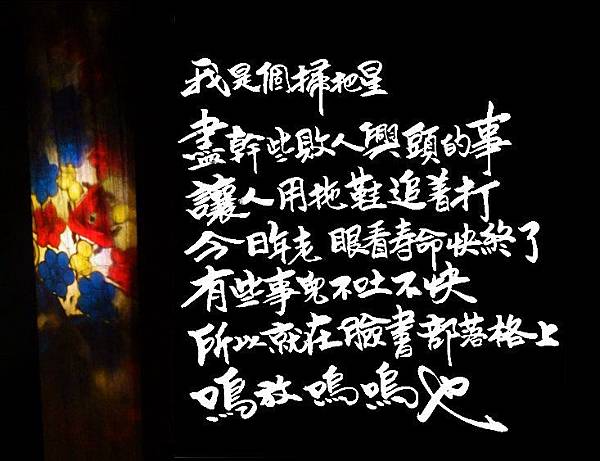 我是個掃把星
盡幹些敗人興頭的事
讓人用拖鞋追着打
今日年老 眼看壽命快終了
有些事兒不吐不快
所以就在臉書部落格上
嗚放嗚嗚也